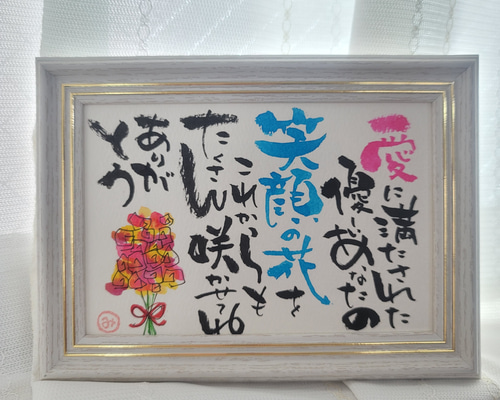 愛に満たされた
優しいあなたの
笑顔の花を
これからも
たくさん咲かせてね
ありが
とう